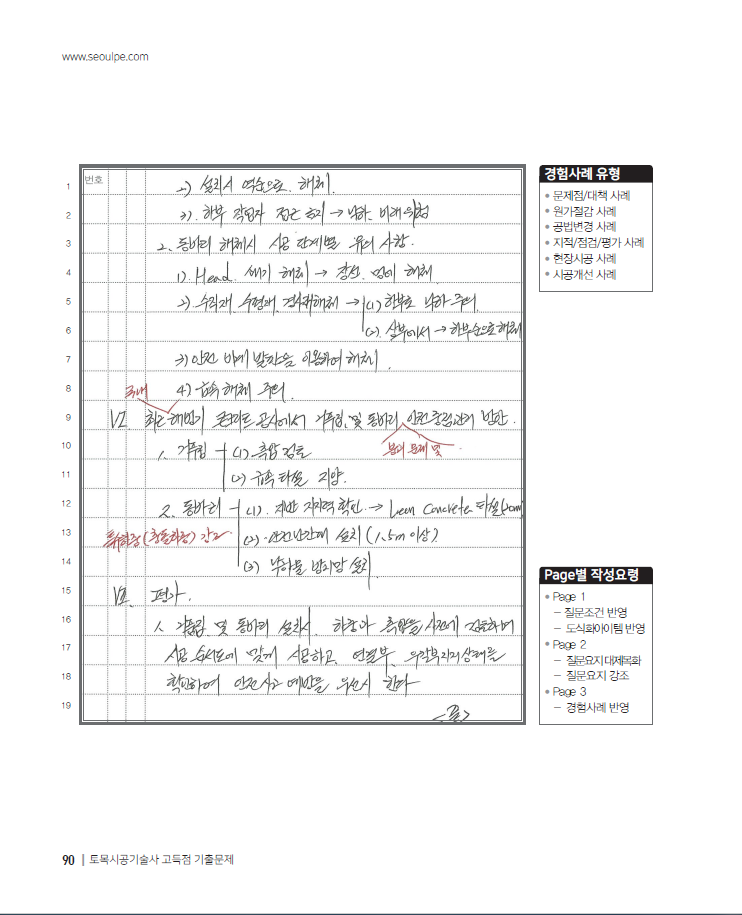 www.seoulpe.com
번호
1 2) 설치시 역순으로 해체.
2 3). 하부 작업자 접근 금지 → 낙하. 비래 위험
3 2. 동바리 해체시 시공 단계별 유의 사항.
4 1). Head. 쐐기 해체 → 장선. 멍에 해체
5 2). 수직재, 수평재, 경사재해체 → (1) 하부로 낙하 주의.
6 (2). 상부에서 → 하부순으로 해체
7 3) 안전 비계 발판을 이용하여 해체.
8 4) 급속 해체 주의.
국내
9 Ⅵ. 최근 해빙기 콘크리트 공사에서 거푸집 및 동바리 안전중점관리 방안.
10 1. 거푸집 (1) 측압 검토
붕괴 문제 및
11 (2) 급속 타설 지양.
12 2. 동바리 (1). 지반 지지력 확인. → Lean Concrete 타설
13 (2). 안전난간대 설치 (1.5m 이상)
특수하중(충돌하중) 강조
14 (3) 낙하물 방지망 설치
15 Ⅶ. 평가.
16 1. 거푸집 및 동바리 설치시. 하중과 측압을 사전에 검토하며
17 시공 순서도에 맞게 시공하고, 연결부, 상태를
18 확인하여 안전사고 예방을 우선시 한다
19 <끝>
경험사례 유형
• 문제점/대책 사례
• 원가절감 사례
• 공법변경 사례
• 지적/점검/평가 사례
• 현장시공 사례
• 시공개선 사례
Page별 작성요령
• Page 1
– 질문조건 반영
– 도식화아이템 반영
• Page 2
– 질문요지 대제목화
– 질문요지 강조
• Page 3
– 경험사례 반영
90 | 토목시공기술사 고득점 기출문제